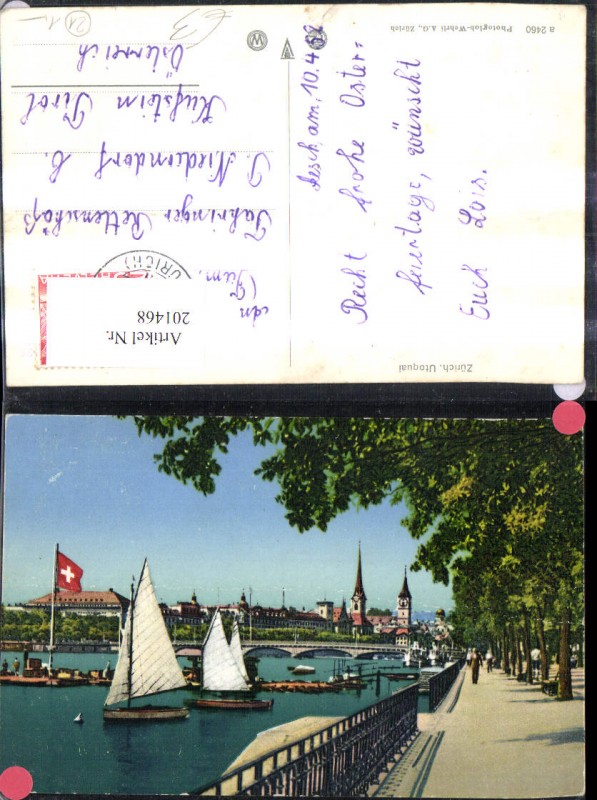 a 2460 Photoglob-Wehrli A.G., Zürich
Zürich. Utoquai
Aesch, am, 10.4.52
Recht frohe Oster=
feiertage, wünscht
Euch Lois.
Fam.
P. Niederndorf b.
Kufstein Tirol
Österreich
Artikel Nr.
201468
€3